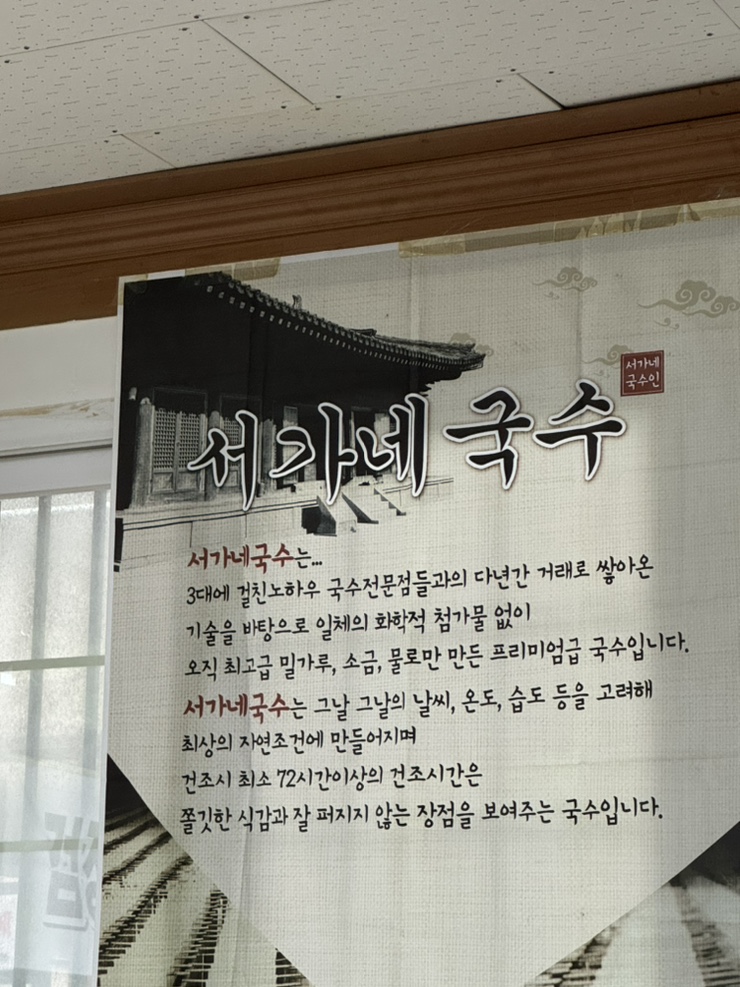 서가네
국수인
서가네 국수
서가네국수는...
3대에 걸친노하우 국수전문점들과의 다년간 거래로 쌓아온
기술을 바탕으로 일체의 화학적 첨가물 없이
오직 최고급 밀가루, 소금, 물로만 만든 프리미엄급 국수입니다.
서가네국수는 그날 그날의 날씨, 온도, 습도 등을 고려해
최상의 자연조건에 만들어지며
건조시 최소 72시간이상의 건조시간은
쫄깃한 식감과 잘 퍼지지 않는 장점을 보여주는 국수입니다.